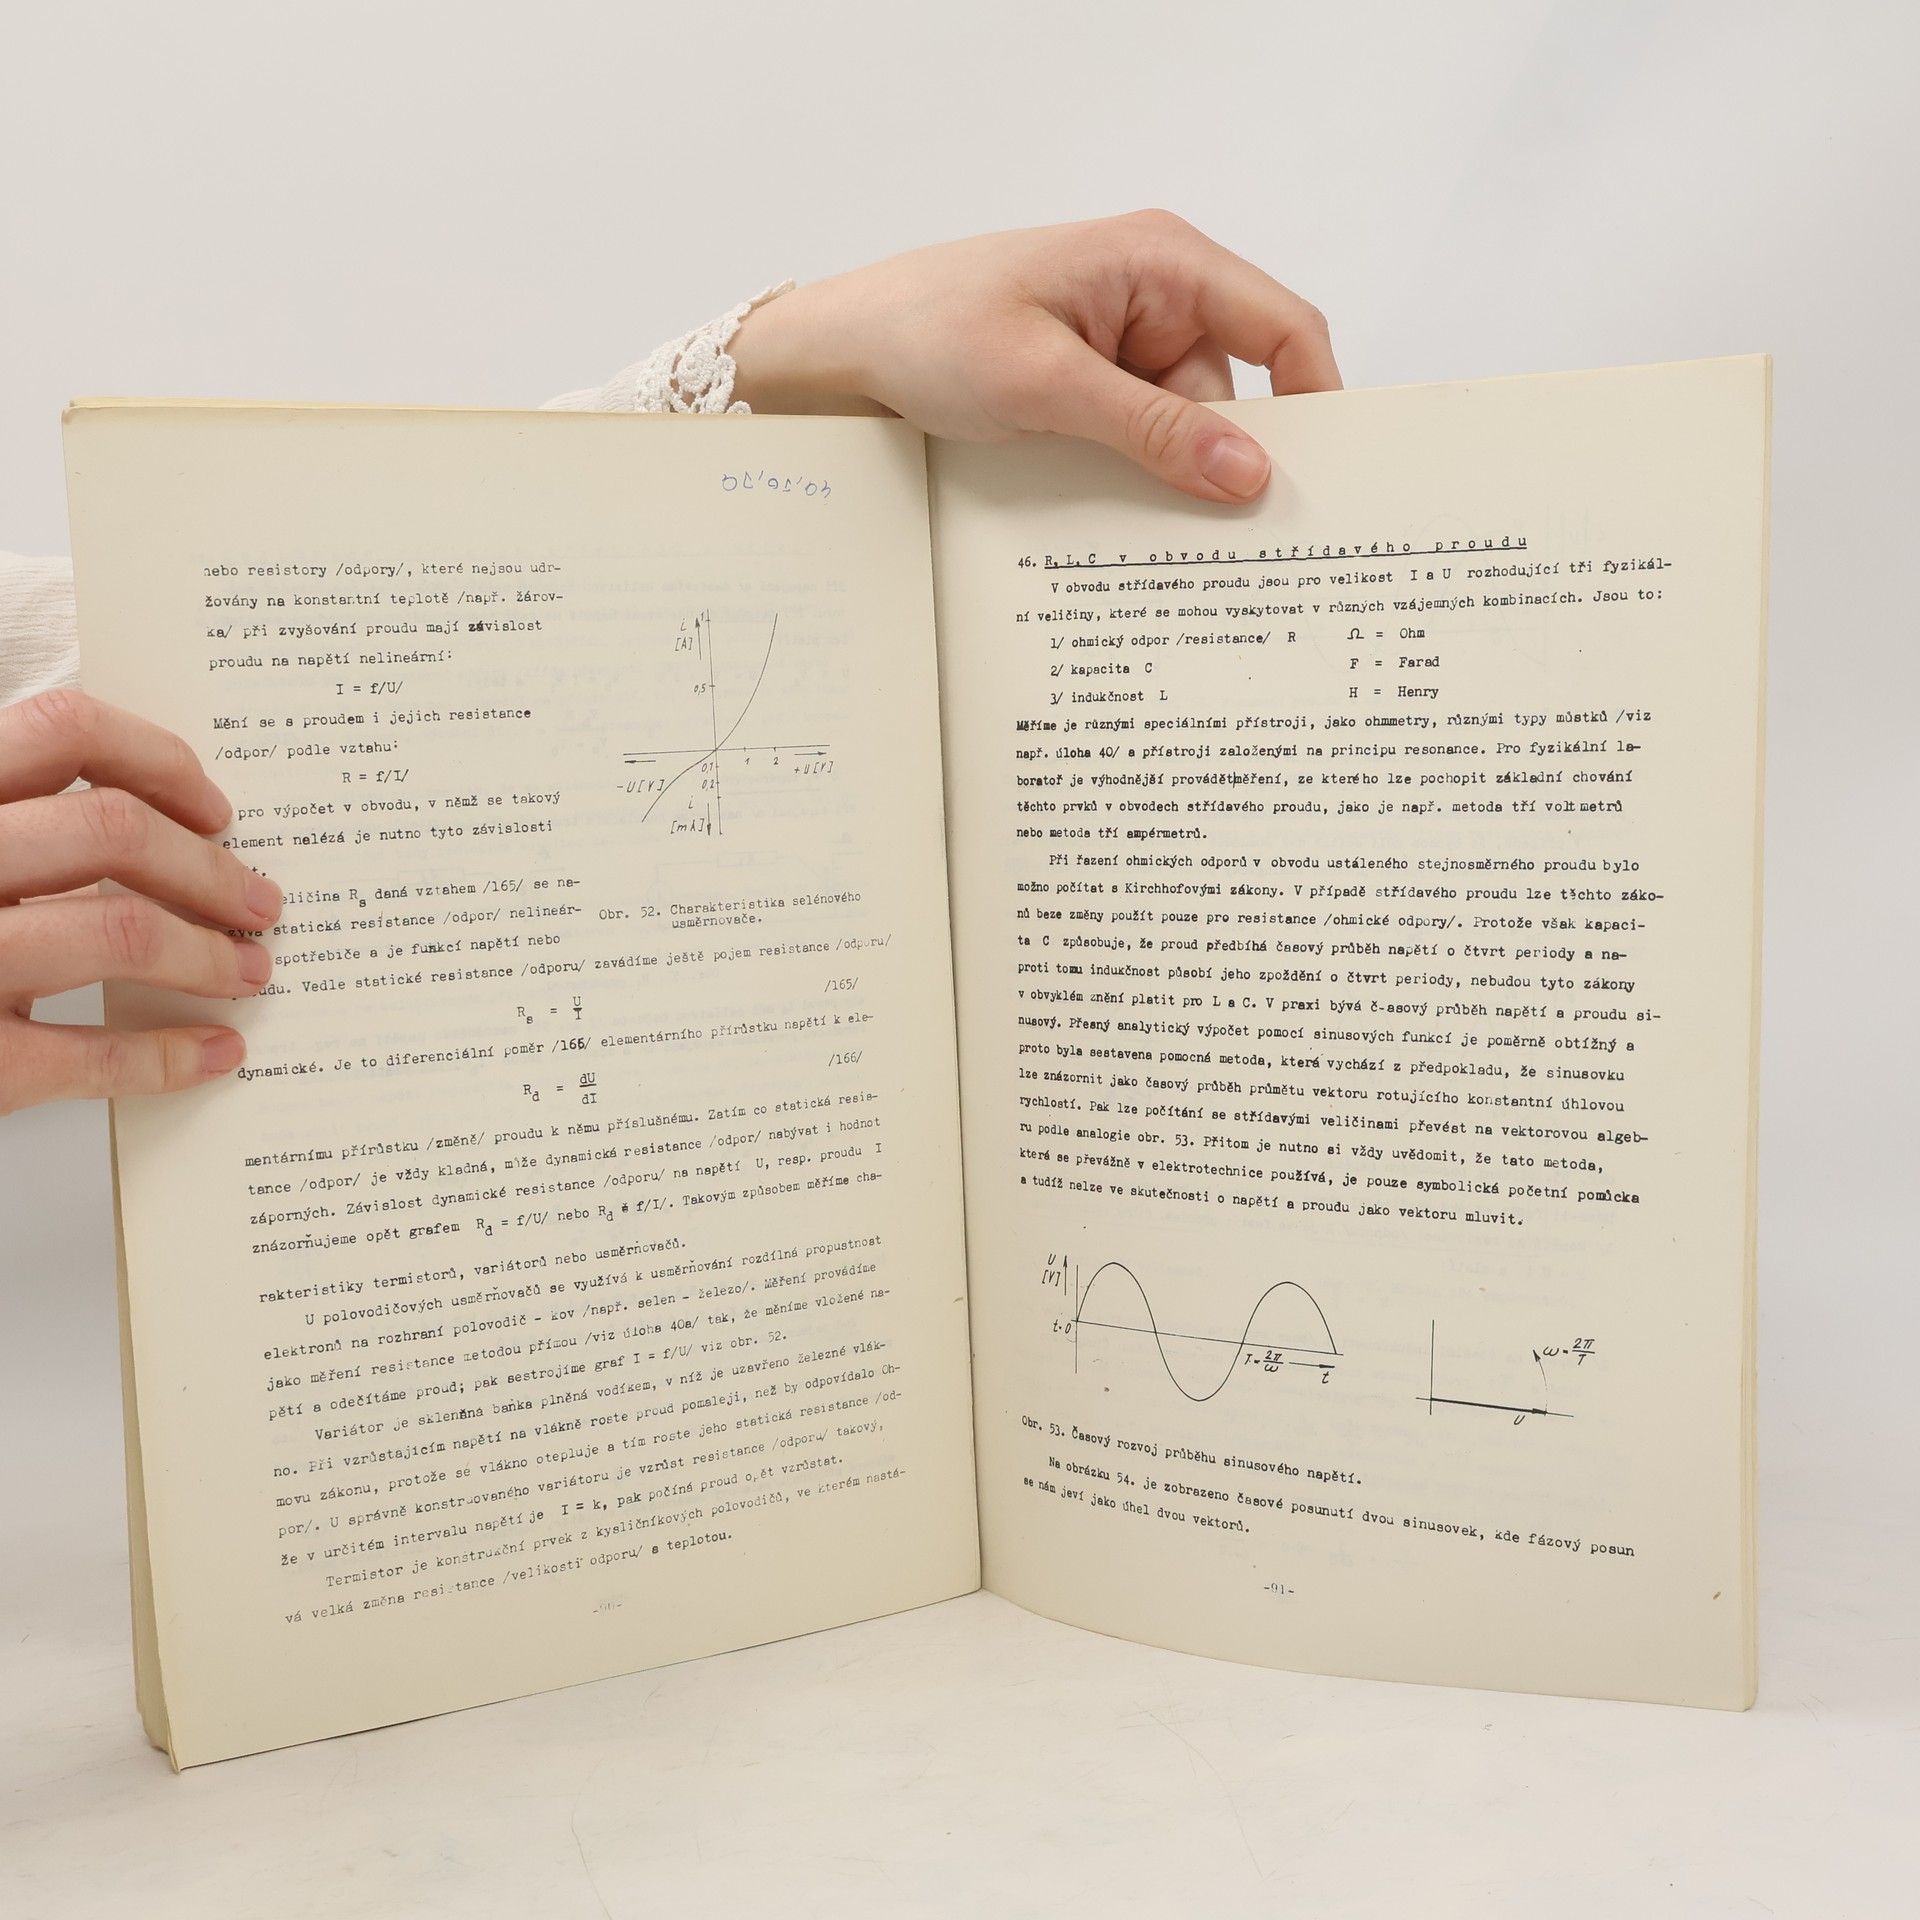 nebo resistory /odpory/, které nejsou udr-
žovány na konstantní teplotě /např. žárov-
ka/ při zvyšování proudu mají závislost
proudu na napětí nelineární:
I = f/U/
Mění se s proudem i jejich resistance
/odpor/ podle vztahu:
R = f/I/
pro výpočet v obvodu, v němž se takový
element nalézá je nutno tyto závislosti
t.
eličina Rs daná vztahem /165/ se na-
zývá statická resistance /odpor/ nelineár-
spotřebiče a je funkcí napětí nebo
oudu. Vedle statické resistance /odporu/ zavádíme ještě pojem resistance /odporu/
i
[A]
1
0,5
1 2
+U[V]
-U[V]
0,1
0,2
i
[mA]
Obr. 52. Charakteristika selénového
usměrňovače.
Rs = U/I /165/
dynamické. Je to diferenciální poměr /166/ elementárního přírůstku napětí k ele-
Rd = dU/dI /166/
mentárnímu přírůstku /změně/ proudu k němu příslušnému. Zatím co statická resis-
tance /odpor/ je vždy kladná, může dynamická resistance /odpor/ nabývat i hodnot
záporných. Závislost dynamické resistance /odporu/ na napětí U, resp. proudu I
znázorňujeme opět grafem Rd = f/U/ nebo Rd = f/I/. Takovým způsobem měříme cha-
rakteristiky termistorů, variátorů nebo usměrňovačů.
U polovodičových usměrňovačů se využívá k usměrňování rozdílná propustnost
elektronů na rozhraní polovodič - kov /např. selen - železo/. Měření provádíme
jako měření resistance metodou přímou /viz úloha 40a/ tak, že měníme vložené na-
pětí a odečítáme proud; pak sestrojíme graf I = f/U/ viz obr. 52.
Variátor je skleněná baňka plněná vodíkem, v níž je uzavřeno železné vlák-
no. Při vzrůstajícím napětí na vlákně roste proud pomaleji, než by odpovídalo Oh-
movu zákonu, protože se vlákno otepluje a tím roste jeho statická resistance /od-
por/. U správně konstruovaného variátoru je vzrůst resistance /odporu/ takový,
že v určitém intervalu napětí je I = k, pak počíná proud opět vzrůstat.
Termistor je konstrukční prvek z kysličníkových polovodičů, ve kterém nastá-
vá velká změna resistance /velikosti odporu/ s teplotou.
-90-
46. R, L, C v obvodu střídavého proudu
V obvodu střídavého proudu jsou pro velikost I a U rozhodující tři fyzikál-
ní veličiny, které se mohou vyskytovat v různých vzájemných kombinacích. Jsou to:
1/ ohmický odpor /resistance/ R Ω = Ohm
2/ kapacita C F = Farad
3/ indukčnost L H = Henry
Měříme je různými speciálními přístroji, jako ohmmetry, různými typy můstků /viz
např. úloha 40/ a přístroji založenými na principu resonance. Pro fyzikální la-
boratoř je výhodnější provádět měření, ze kterého lze pochopit základní chování
těchto prvků v obvodech střídavého proudu, jako je např. metoda tří voltmetrů
nebo metoda tří ampérmetrů.
Při řazení ohmických odporů v obvodu ustáleného stejnosměrného proudu bylo
možno počítat s Kirchhofovými zákony. V případě střídavého proudu lze těchto záko-
nů beze změny použít pouze pro resistance /ohmické odpory/. Protože však kapaci-
ta C způsobuje, že proud předbíhá časový průběh napětí o čtvrt periody a na-
proti tomu indukčnost působí jeho zpoždění o čtvrt periody, nebudou tyto zákony
v obvyklém znění platit pro L a C. V praxi bývá č-asový průběh napětí a proudu si-
nusový. Přesný analytický výpočet pomocí sinusových funkcí je poměrně obtížný a
proto byla sestavena pomocná metoda, která vychází z předpokladu, že sinusovku
lze znázornit jako časový průběh průmětu vektoru rotujícího konstantní úhlovou
rychlostí. Pak lze počítání se střídavými veličinami převést na vektorovou algeb-
ru podle analogie obr. 53. Přitom je nutno si vždy uvědomit, že tato metoda,
která se převážně v elektrotechnice používá, je pouze symbolická početní pomůcka
a tudíž nelze ve skutečnosti o napětí a proudu jako vektoru mluvit.
U
[V]
t=0
T = 2π/ω
t
ω = 2π/T
U
Obr. 53. Časový rozvoj průběhu sinusového napětí.
Na obrázku 54. je zobrazeno časové posunutí dvou sinusovek, kde fázový posun
se nám jeví jako úhel dvou vektorů.
-91-